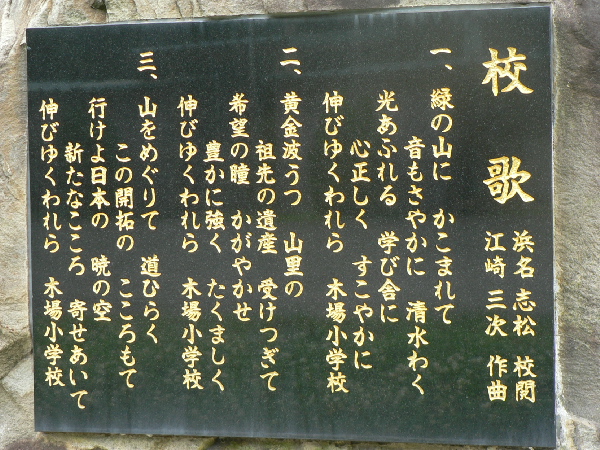 校歌
浜名 志松 校閲
江崎 三次 作曲
一、緑の山に かこまれて
音もさやかに 清水わく
光あふれる 学び舎に
心正しく すこやかに
伸びゆくわれら 木場小学校
二、黄金波うつ 山里の
祖先の遺産 受けつぎて
希望の瞳 かがやかせ
豊かに強く たくましく
伸びゆくわれら 木場小学校
三、山をめぐりて 道ひらく
この開拓の こころもて
行けよ日本の 暁の空
新たなこころ 寄せあいて
伸びゆくわれら 木場小学校